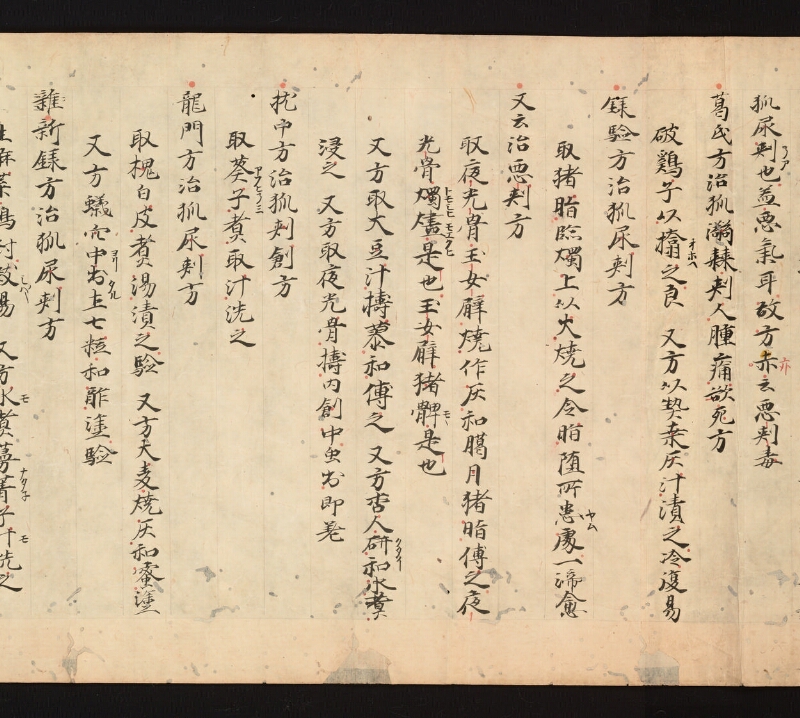 狐尿刾也盖悪氣耳故方赤云悪刾毒
葛氏方治狐棘刾人腫痛欲死方
破鶏子以搨之良 又方以𤍠桒灰汁漬之冷復易
録驗方治狐尿刾方
取猪脂臨燭上以火燒之令脂堕所患處一渧愈
又云治悪刾方
取夜光骨玉女臂燒作灰和臈月猪脂傅之夜
光骨燭燼是也玉女臂猪髀是也
又方取大豆汁擣和傅之 又方杏人研和水煑
浸之 又方取夜光骨擣内創中虫出即差
枕中方治狐刾創方
取葵子煑取汁洗之
龍門方治狐尿刾方
取槐白皮煑湯漬之驗 又方大麦燒灰和蜜塗
又方蟻穴中出土七粒和酢塗驗
雜新録方治狐尿刾方
又方水煑蔓菁子汁洗之